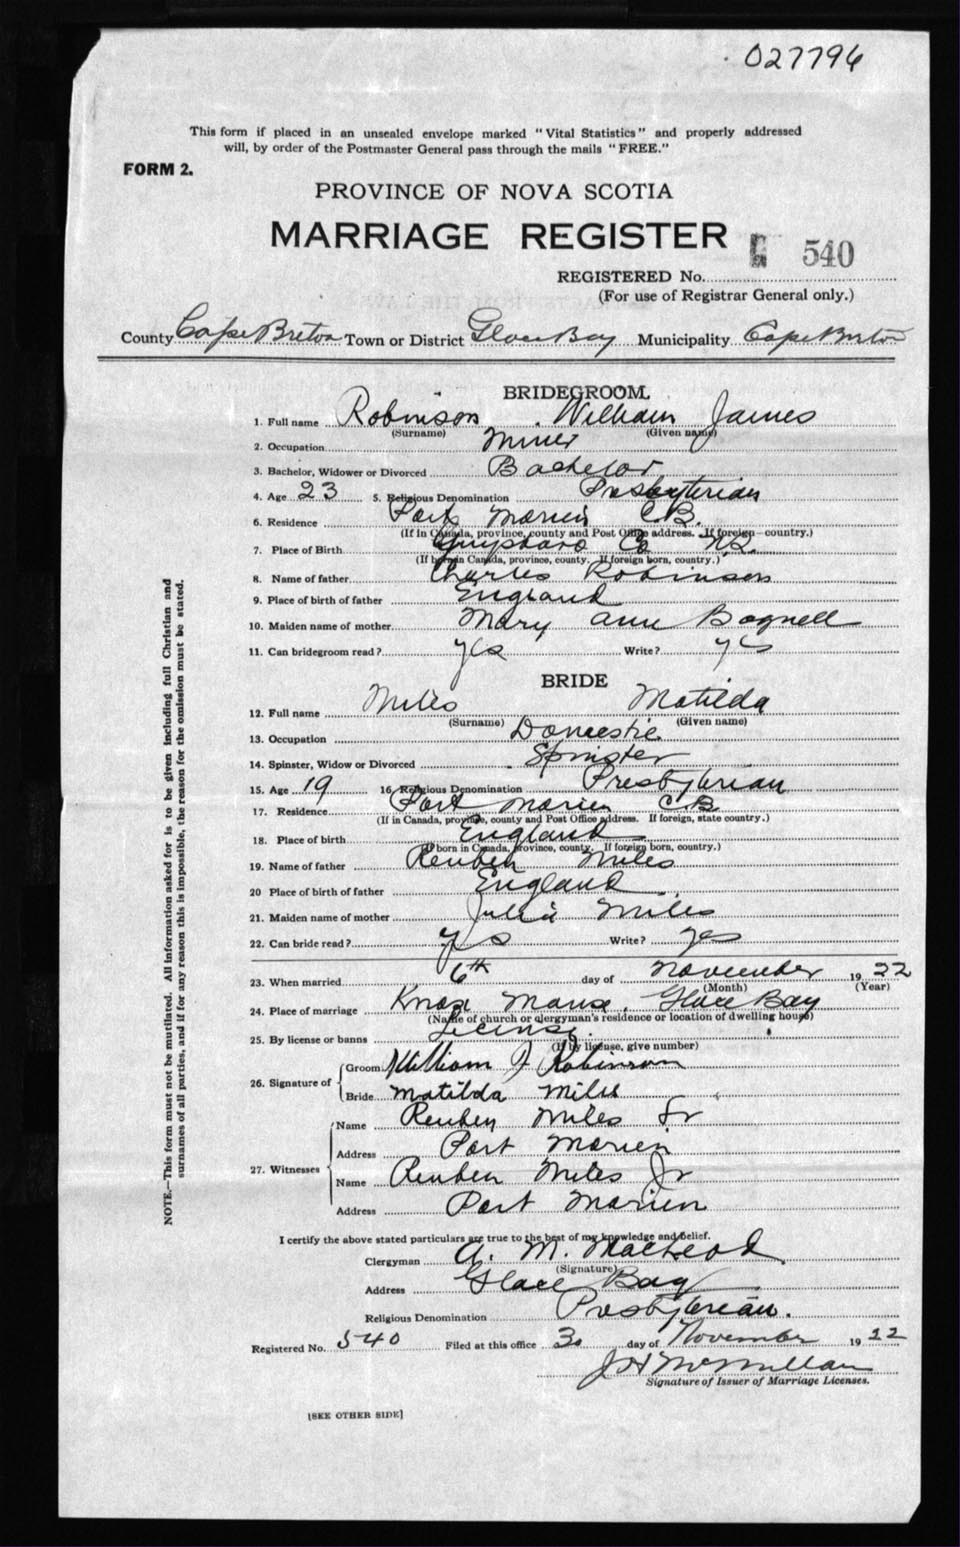 027796
This form if placed in an unsealed envelope marked "Vital Statistics" and properly addressed
will, by order of the Postmaster General pass through the mails "FREE."
FORM 2.
PROVINCE OF NOVA SCOTIA
MARRIAGE REGISTER
540
REGISTERED No.
(For use of Registrar General only.)
County Cape Breton Town or District Glace Bay Municipality Cape Breton
BRIDEGROOM.
1. Full name Robinson William James
(Surname) (Given name)
2. Occupation Miner
3. Bachelor, Widower or Divorced Bachelor
4. Age 23 5. Religious Denomination Presbyterian
6. Residence Port Morien C.B.
(If in Canada, province, county and Post Office address. If foreign country.)
7. Place of Birth Guysboro Co N.S.
(If born in Canada, province, county. If foreign born, country.)
8. Name of father Charles Robinson
9. Place of birth of father England
10. Maiden name of mother Mary Ann Bagnell
11. Can bridegroom read? yes Write? yes
BRIDE
12. Full name Miles Matilda
(Surname) (Given name)
13. Occupation Domestic
14. Spinster, Widow or Divorced Spinster
15. Age 19 16. Religious Denomination Presbyterian
17. Residence Port Morien C.B
(If in Canada, province, county and Post Office address. If foreign, state country.)
18. Place of birth England
(If born in Canada, province, county. If foreign born, country.)
19. Name of father Reuben Miles
20 Place of birth of father England
21. Maiden name of mother Julia Miles
22. Can bride read? yes Write? yes
23. When married 6th day of November 1922
(Month) (Year)
24. Place of marriage Knox Manse, Glace Bay
(Name of church or clergyman's residence or location of dwelling house)
25. By license or banns License
(If by license, give number)
26. Signature of Groom William J Robinson
Bride Matilda Miles
27. Witnesses Name Reuben Miles Sr
Address Port Morien
Name Reuben Miles Jr
Address Port Morien
I certify the above stated particulars are true to the best of my knowledge and belief.
Clergyman A. M. MacLeod
(Signature)
Address Glace Bay
Religious Denomination Presbyterian.
Registered No. 540 Filed at this office 30 day of November 1922
J H McMillan
Signature of Issuer of Marriage Licenses.
[SEE OTHER SIDE]
NOTE.—This form must not be mutilated. All information asked for is to be given including full Christian and
surnames of all parties, and if for any reason this is impossible, the reason for the omission must be stated.